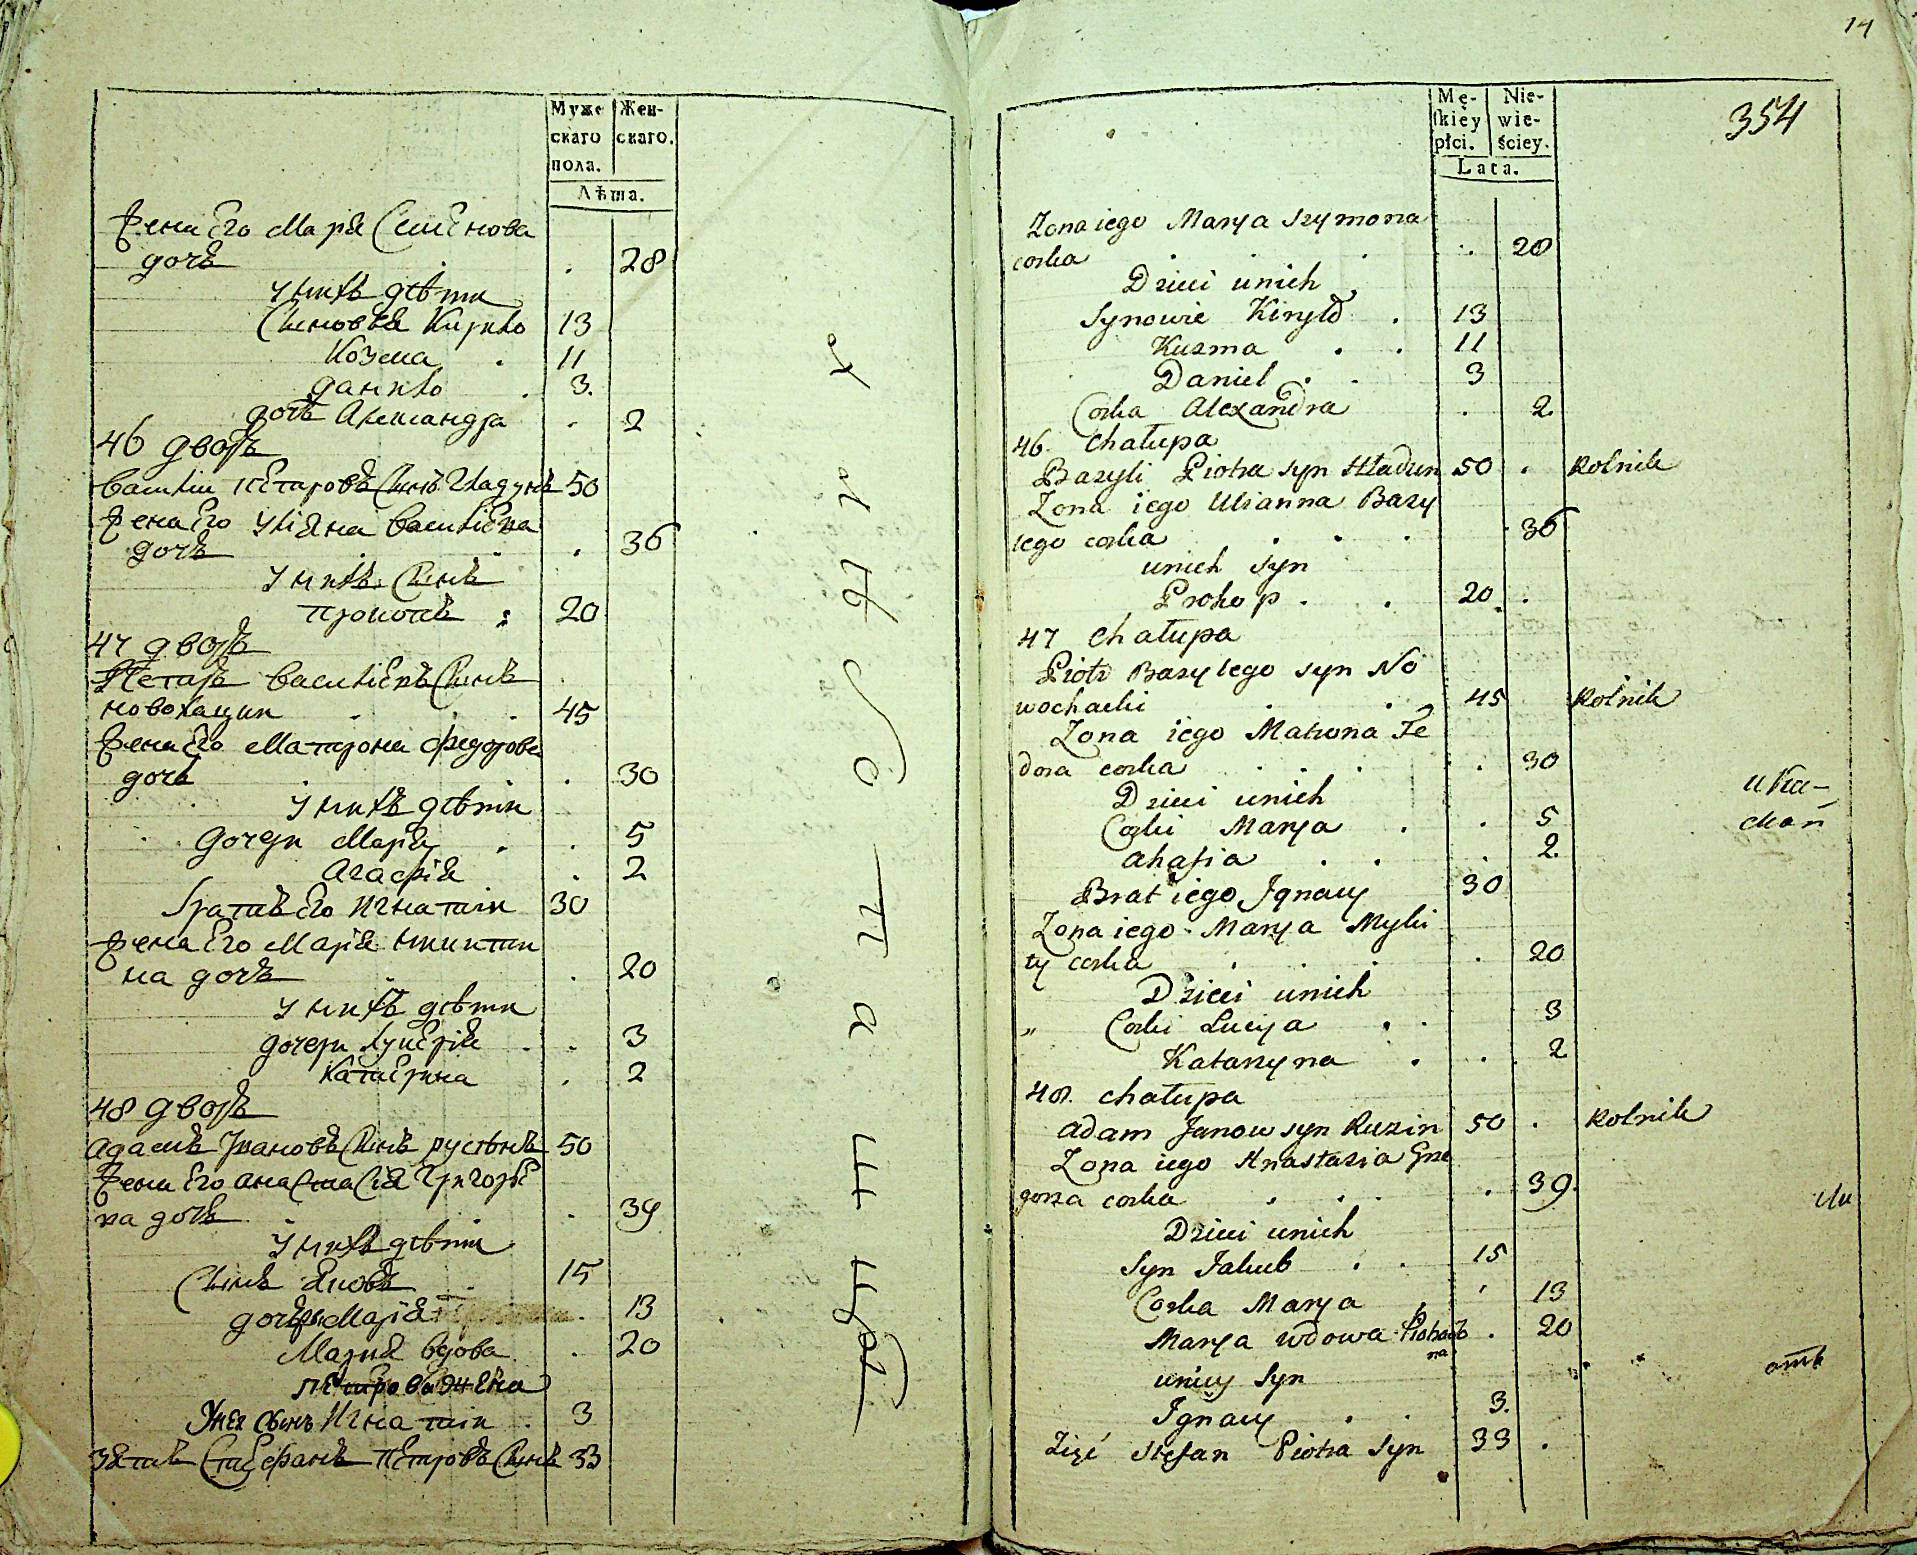 Муже
скаго
пола.
Жен-
скаго.
Лѣта.
жена Его Марія Семенова
дочь . 28
У нихъ дѣти
Сыновья Кирило 13
Козма . 11
данило . 3.
дочь Александра . 2
46 дворъ
Василій Петровъ Сынъ Гладунъ 50
жена Его Уліяна Васильева
дочь . 36
У нихъ Сынъ
Прокопъ 20
47 дворъ
Петръ Васильевъ Сынъ
новохацки 45
жена Его Матрона Федорова
дочь . 30
У нихъ дѣти
дочери Марія . 5
Агафія . 2
братъ Его Игнатій 30
жена Его Марія Никити
на дочь . 20
У нихъ дѣти
дочери Лукерія . 3
Катерина . 2
48 дворъ
Адамъ Ивановъ Сынъ русѣнъ 50
жена Его анастасія Григорье
ва дочь . 39
У нихъ дѣти
Сынъ Яковъ 15
дочь Марія . 13
Мария вдова . 20
петрова жена
У ней сынъ Игнатій . 3
Зять Стефанъ Петровъ Сынъ 33
14
354
Mę-
skiéy
płci.
Nie-
wie-
ściey.
Lata.
Zona iego Marya Szymona
corka . 28
Dzieci unich
Synowie Kiryło . 13
Kuzma . . 11
Daniel . . 3
Corka Alexandra . 2.
46 Chałupa
Bazyli Piotra syn Hładun 50 . Rolnik
Zona iego Ulianna Bazy
lego corka . . . 36
unich syn
Prokop . . 20 .
47 Chałupa
Piotr Bazylego syn No
wochacki . . 45 Rolnik
Zona iego Matrona Fe
dora corka . . . 30
Dzieci unich
Corki Marya . . 5
Ahafia . . . 2.
Brat iego Jgnacy 30
Zona iego Marya Myki
ty corka . . . 20
Dzieci unich
„ Corki Lucya . . 3
Katarzyna . . 2
48. Chałupa
Adam Janow syn Ruzin 50 . Rolnik
Zona iego Anastazia Grze
gorza corka . . . 39.
Dzieci unich
Syn Jakub . . 15
Corka Marya 13
Marya wdowa . 20
uniey Syn
Jgnacy . . 3.
Zięć Stefan Piotra Syn 33 .
отъ